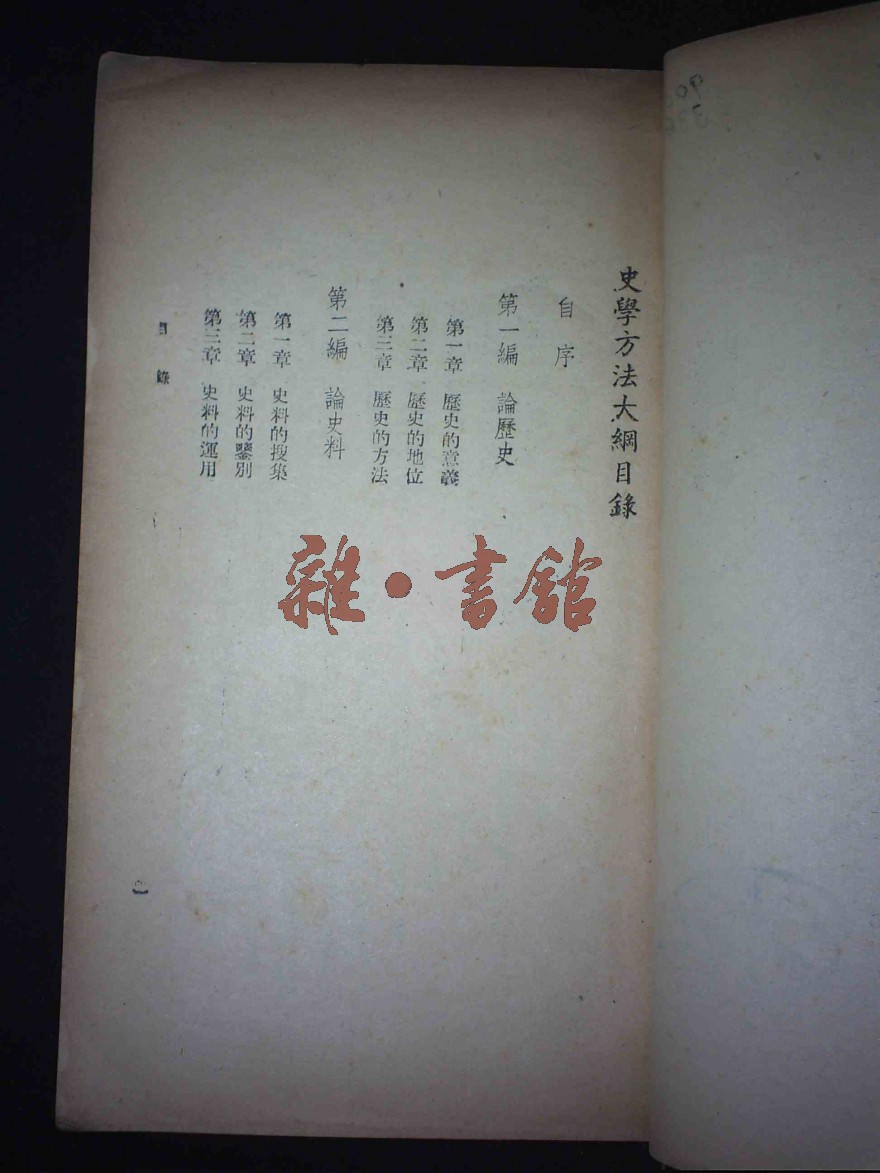 史學方法大綱目錄
自序
第一編 論歷史
第一章 歷史的意義
第二章 歷史的地位
第三章 歷史的方法
第二編 論史料
第一章 史料的搜集
第二章 史料的鑒別
第三章 史料的運用
目錄
雜·書館